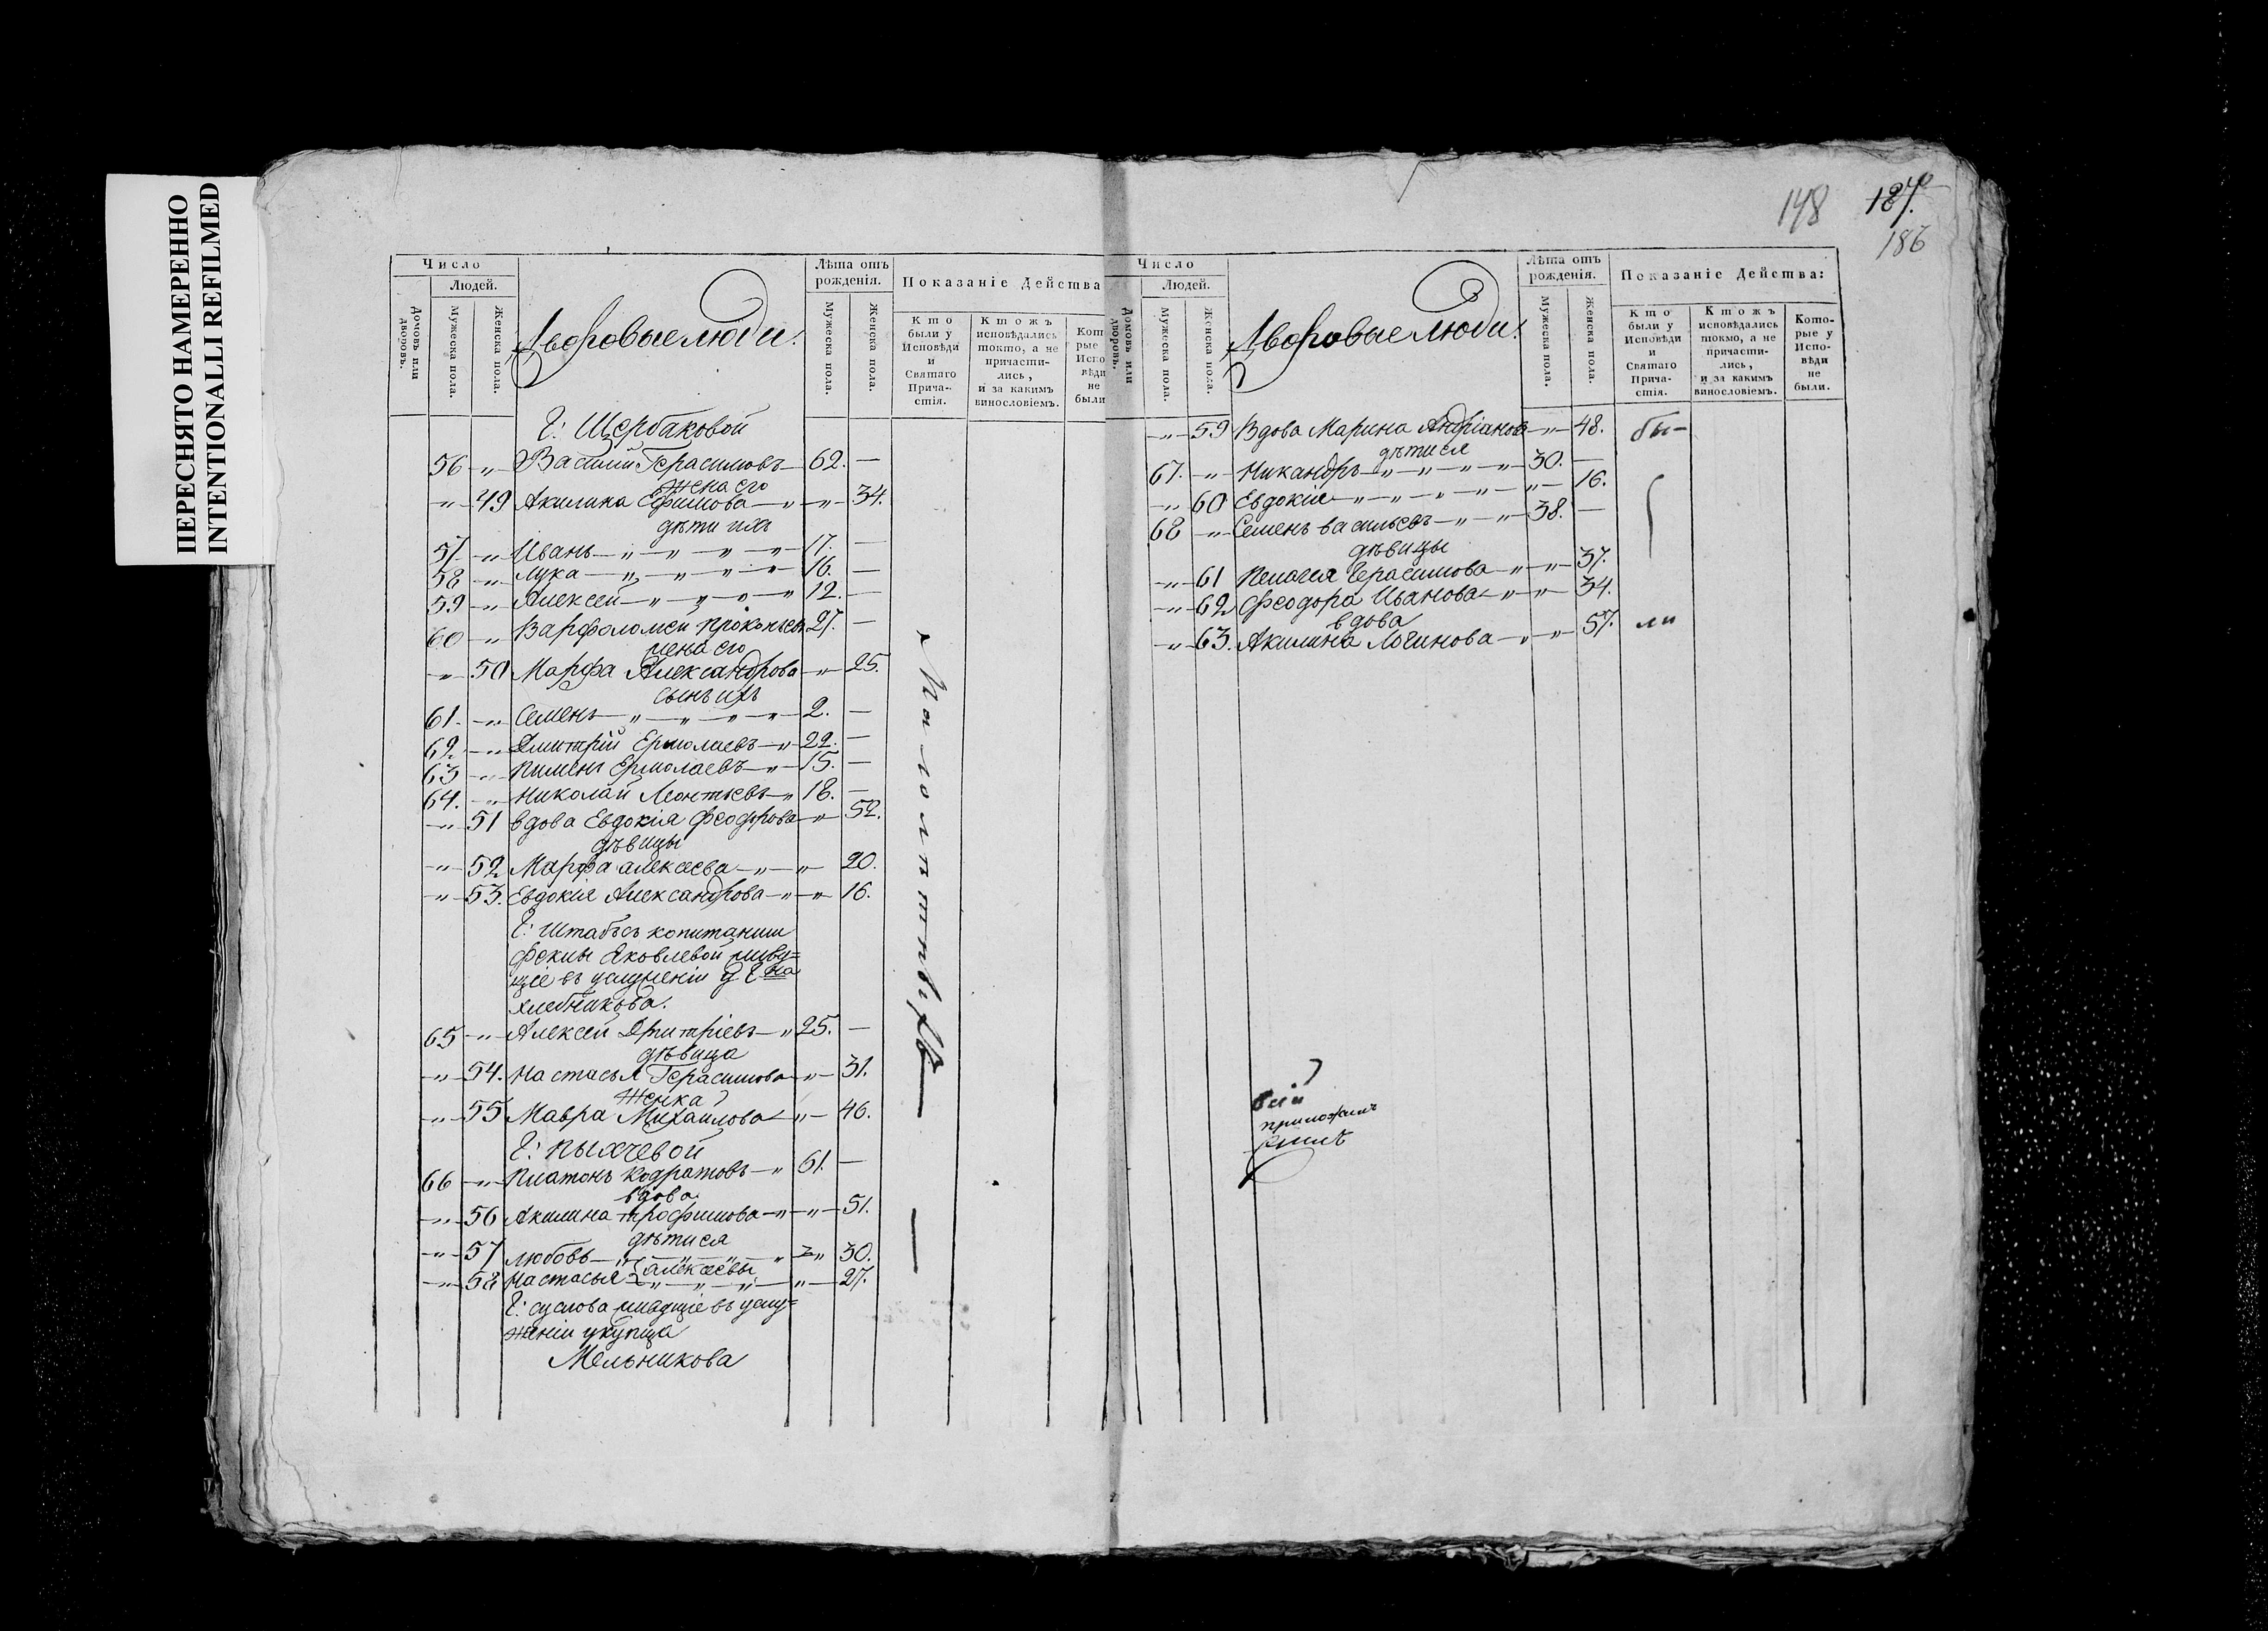 ПЕРЕСНЯТО НАМЕРЕННО
INTENTIONALLI REFILMED
148 187.
186
Число
Людей.
Домовъ или дворовъ.
Мужеска пола.
Женска пола.
Дворовые люди.
Лѣта отъ рожденія.
Мужеска пола.
Женска пола.
Показаніе Действа
Кто были у Исповѣди и Святаго Прича-стія.
Ктожъ исповѣдались токмо, а не причасти-лись, и за какимъ винословіемъ.
Кот рые Испо вѣди не были
Г: Щербаковой
56 „ Василий Герасимовъ 62. —
жена его
„ 49 Акилина Ефимова „ 34.
дѣти ихъ
57. „ Иванъ 17. —
58 „ Лука 16. —
59 „ Алексей 12. —
60 „ Варфоломеи Прокопьевъ 27. —
жена его
„ 50 Марфа Александрова „ 25.
сынъ ихъ
61. „ Семенъ 2. —
62. „ Дмитрій Ермолаевъ 22. —
63 „ Пименъ Ермолаевъ 15. —
64. „ Николай Леонтьевъ 18. —
„ 51 вдова Евдокія Феодорова „ 52.
дѣвицы
„ 52 Марфа алексеева „ 20.
„ 53. Евдокія Александрова „ 16.
Г: Штабсъ копитанши
Феклы Яковлевой живу=
щіе въ услуженіи у Г на
Хлебникова.
65 „ Алексей Дмитріевъ 25. —
дѣвица
„ 54. Настасья Герасимова „ 31.
Женка
„ 55 Мавра Михаилова „ 46.
Г: Пыхчевой
66 „ Платонъ Кодратовъ 61. —
вдова
„ 56 Акилина трофимова „ 51.
дѣти ея
„ 57 Любовь „ 30.
алексеевы
„ 58 Настасья „ 27.
Г: суслова живущіе въ услу=
женіи у купца
Мельникова
Малолѣтн
Число
Людей.
Домовъ или дворовъ.
Мужеска пола.
Женска пола.
Дворовые люди.
Лѣта отъ рожденія.
Мужеска пола.
Женска пола.
Показаніе Действа:
Кто были у Исповѣди и Святаго Прича-стія.
Ктожъ исповѣдались токмо, а не причасти-лись, и за какимъ винословіемъ.
Кото-рые у Испо-вѣди не были.
„ 59 Вдова Марина Андріанова „ 48. бы-
дѣти ея
67. „ Никандръ 30. —
„ 60 Евдокія „ 16.
68 „ Семенъ васильевъ 38. —
дѣвицы
„ 61 Пелагея Герасимова „ 37.
„ 62 Феодора Иванова „ 34.
вдова
„ 63. Акилина Логинова „ 57. ли
приложилъ